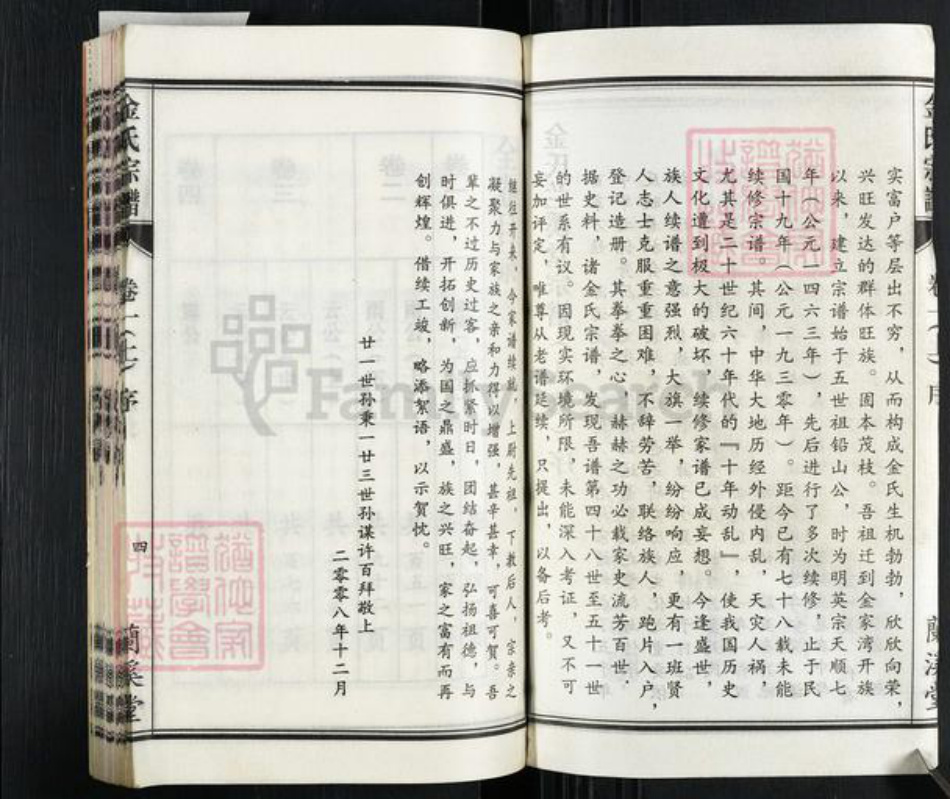 实富户等层出不穷，从而构成金氏生机勃勃，欣欣向荣，
兴旺发达的群体旺族。固本茂枝。吾祖迁到金家湾开族
以来，建立宗谱始于五世祖铅山公，时为明英宗天顺七
年（公元一四六三年），先后进行了多次续修，止于民
国十九年（公元一九三零年）。距今已有七十八载未能
续修宗谱。其间，中华大地历经外侵内乱，天灾人祸，
尤其是二十世纪六十年代的『十年动乱』，使我国历史
文化遭到极大的破坏，续修家谱已成妄想。今逢盛世，
族人续谱之意强烈，大旗一举，纷纷响应，更有一班贤
人志士克服重重困难，不辞劳苦，联络族人，跑片入户，
登记造册。其拳拳之心，赫赫之功必载家史流芳百世。
据史料，诸金氏宗谱，发现吾谱第四十八世至五十一世
的世系有议。因现实环境所限，未能深入考证，又不可
妄加评定，唯尊从老谱延续，只提出，以备后考。
继往开来，今家谱续就，上尉先祖，下教后人，宗亲之
凝聚力与家族之亲和力得以增强，甚幸甚幸，可喜可贺。吾
辈之不过历史过客，应抓紧时日，团结奋起，弘扬祖德，与
时俱进，开拓创新，为国之鼎盛，族之兴旺，家之富有而再
创辉煌。借续工竣，略添絮语，以示贺忱。
廿一世孙秉一廿三世孙谋许百拜敬上
二零零八年十二月
金氏宗谱
卷一（上）序
四
蘭溪堂
FamilySearch